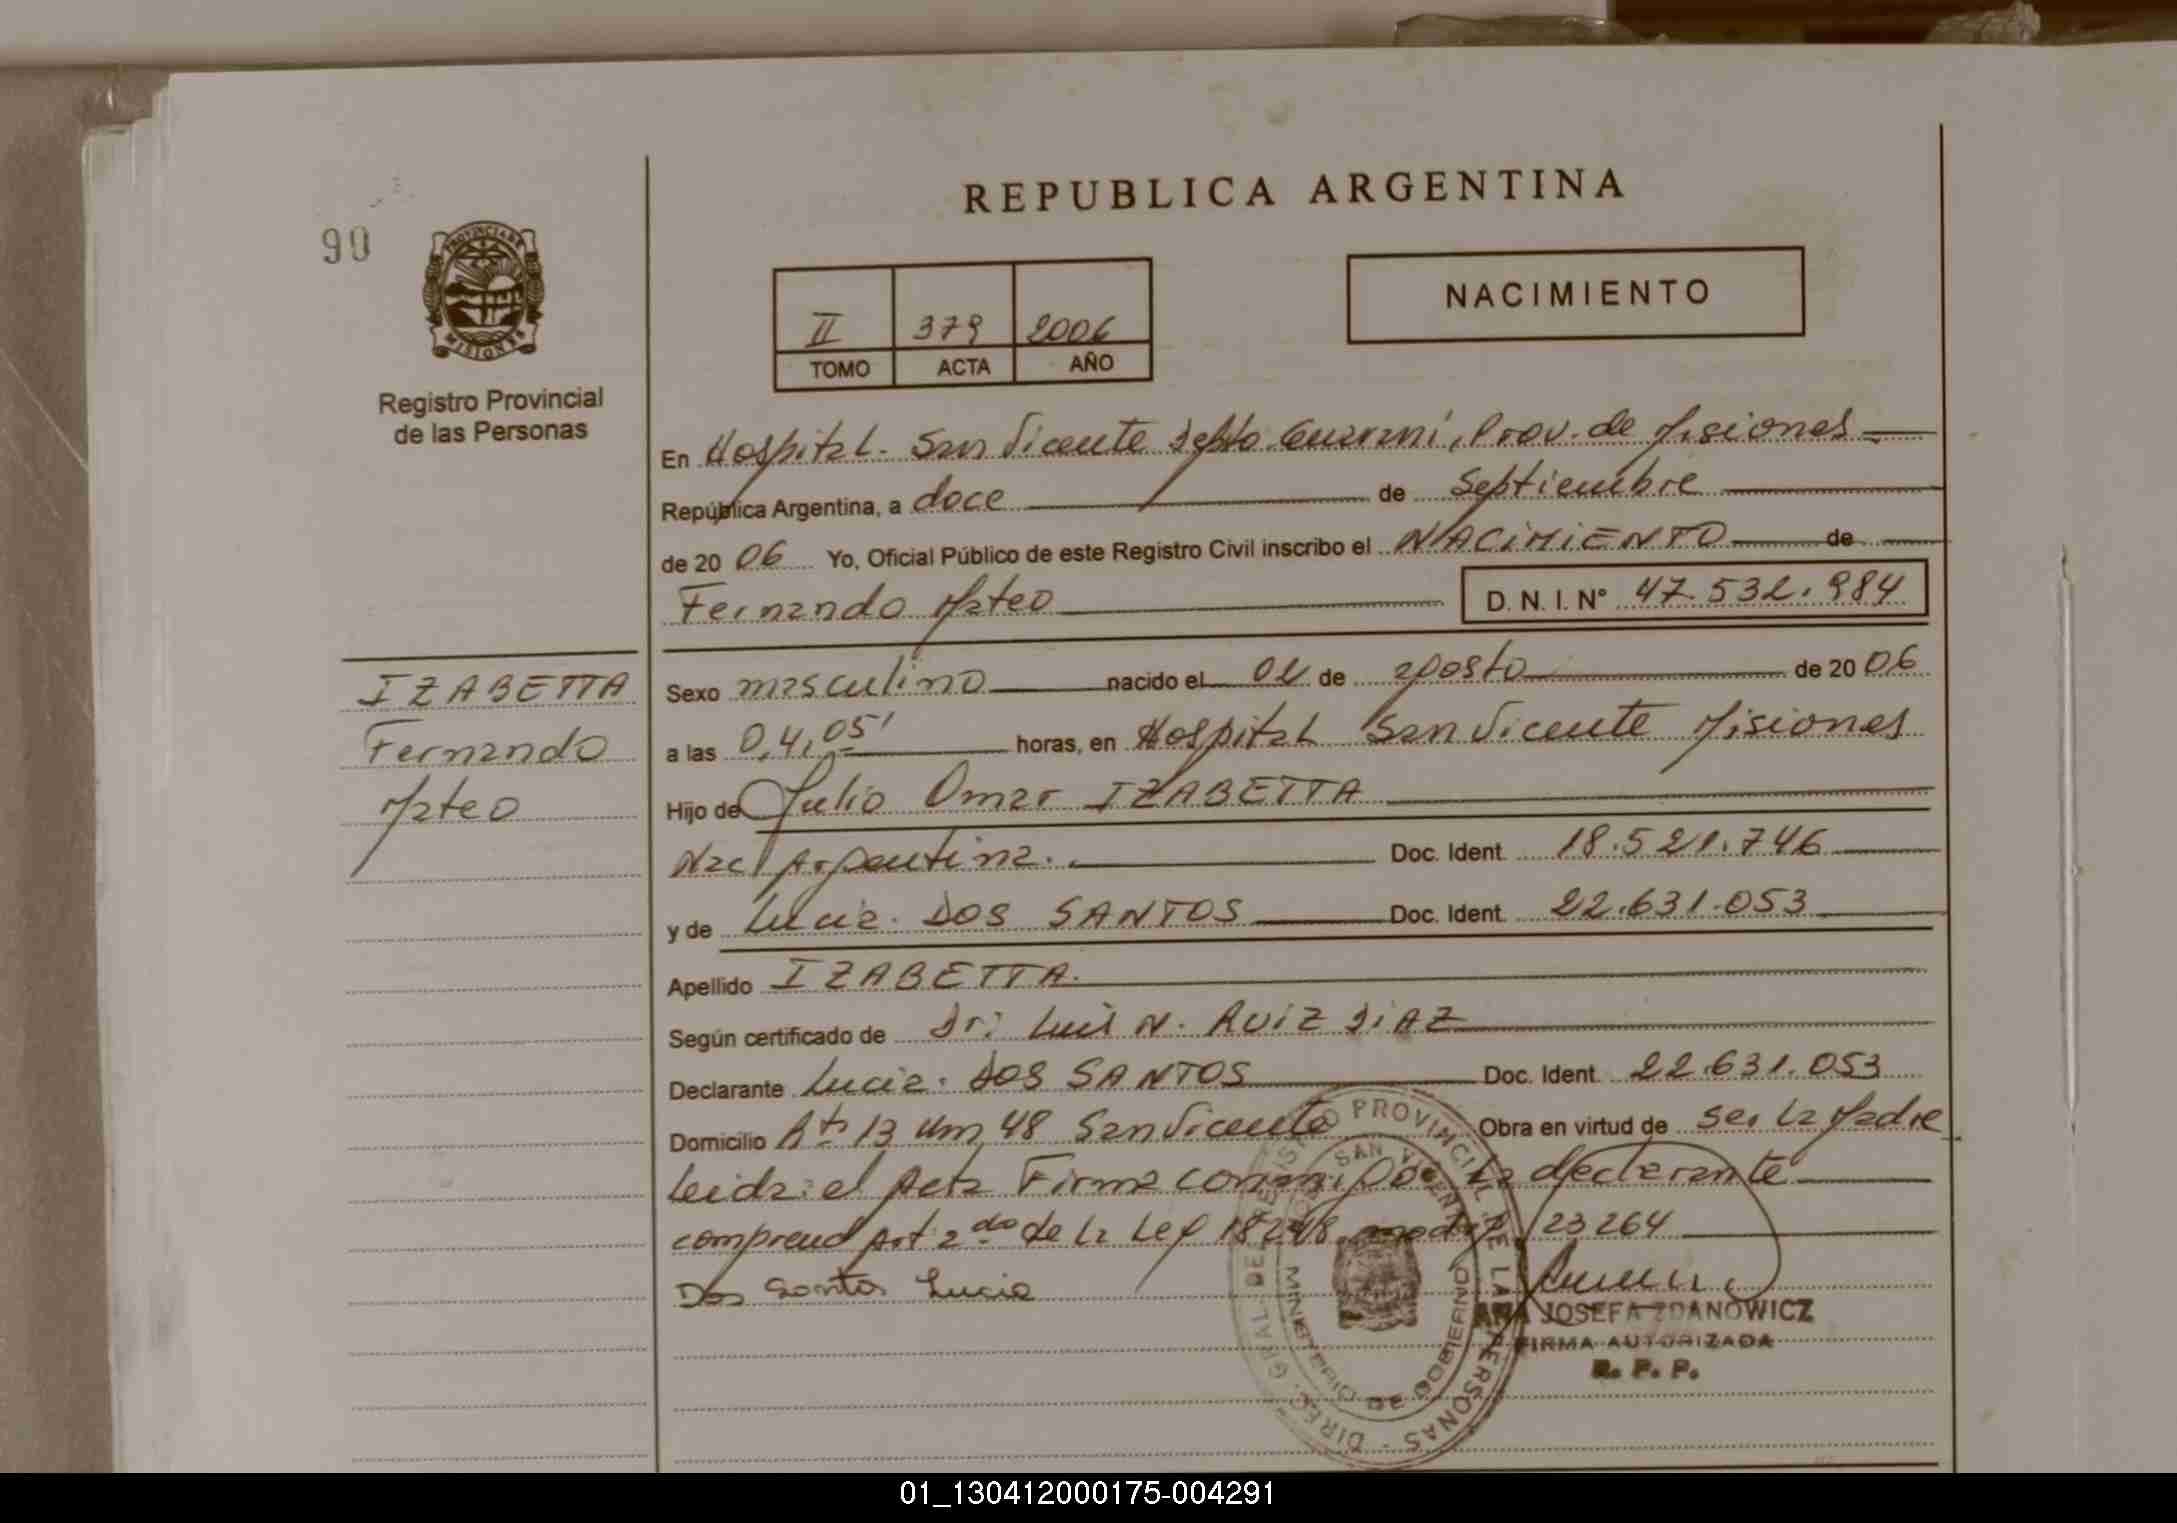 REPUBLICA ARGENTINA
90
PROVINCIA DE
MISIONES
Registro Provincial
de las Personas
NACIMIENTO
II 379 2006
TOMO ACTA AÑO
En Hospital. San Vicente Depto. Guarani, Prov. de Misiones
República Argentina, a doce de Septiembre
de 20 06 Yo, Oficial Público de este Registro Civil inscribo el NACIMIENTO de
Fernando Mateo D. N. I. N° 47.532.984
IZABETTA
Fernando
Mateo
Sexo masculino nacido el 02 de agosto de 20 06
a las 04,05' horas, en Hospital San Vicente Misiones
Hijo de Julio Omar IZABETTA
Nac Argentina. Doc. Ident. 18.521.746
y de Lucia. DOS SANTOS Doc. Ident. 22.631.053
Apellido IZABETTA.
Según certificado de Dr: Luis N. RUIZ DIAZ
Declarante Lucia. DOS SANTOS Doc. Ident. 22.631.053
Domicilio Rta 13 Km 48 San Vicente Obra en virtud de ser la Madre
Leida el Acta Firma conmigo la declarante
comprend Art 2do de la Ley 18248 modif. 23264
Dos Santos Lucia
ANA JOSEFA ZDANOWICZ
FIRMA AUTORIZADA
R. P. P.
DIREC. GRAL. DEL REGISTRO PROVINCIAL DE LAS PERSONAS
SAN VICENTE
MINISTERIO DE GOBIERNO
01_130412000175-004291